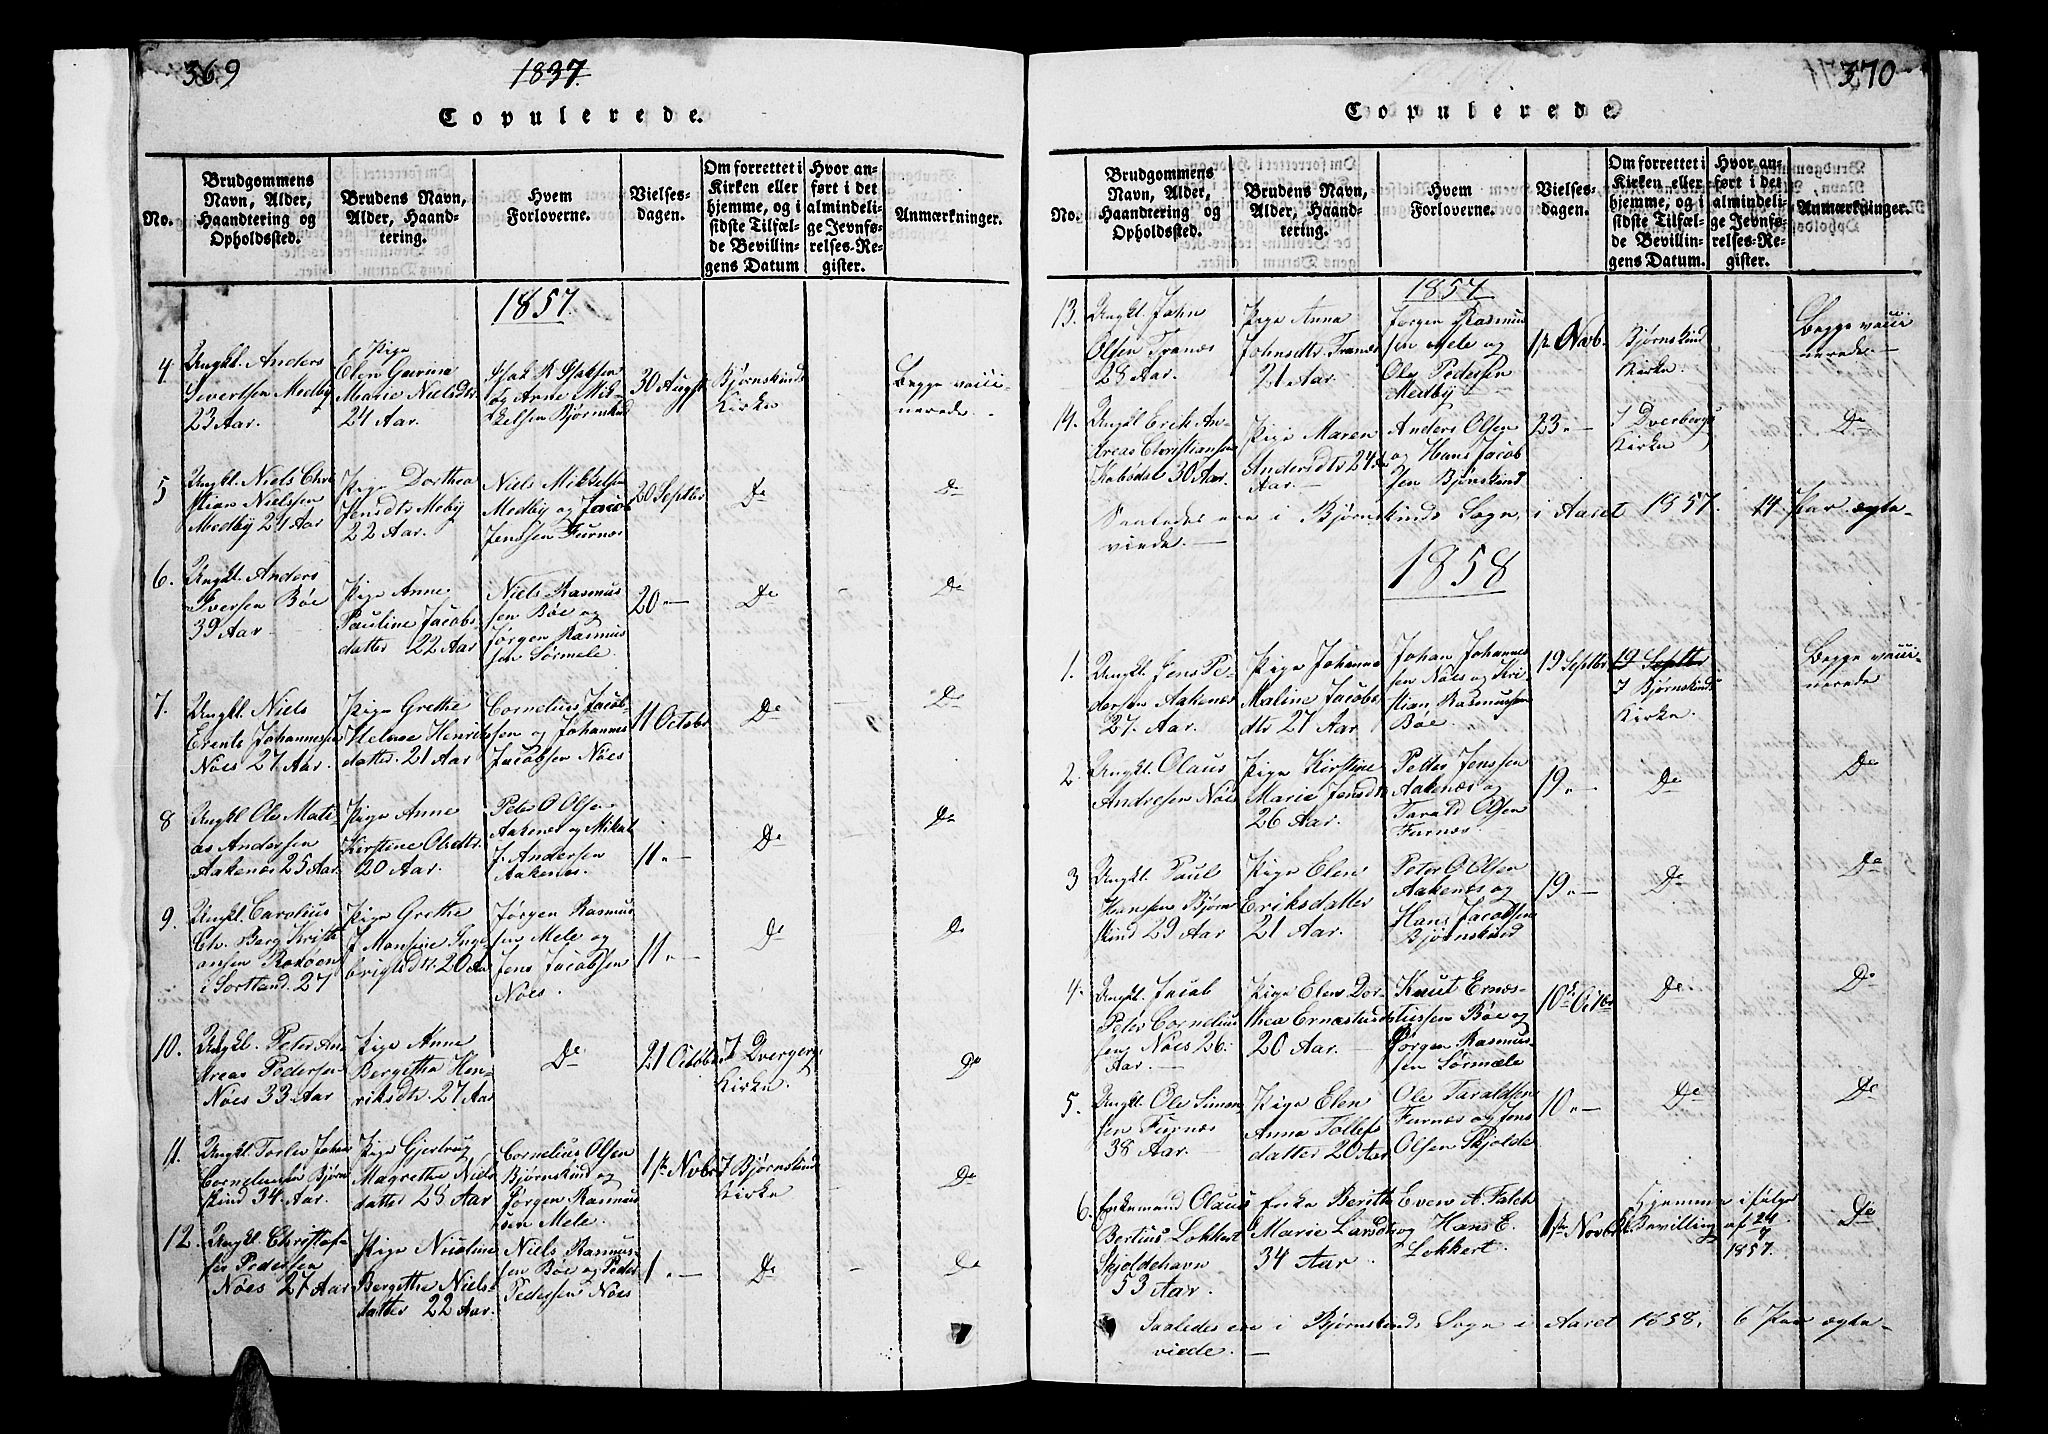 369
1837.
Copulerede.
No.
Brudgommens Navn, Alder, Haandtering og Opholdssted.
Brudens Navn, Alder, Haandtering.
Hvem Forloverne.
Vielsesdagen.
Om forrettet i Kirken eller hjemme, og i sidste Tilfælde Bevillingens Datum
Hvor anført i det almindelige Jevnførelses-Register.
Anmærkninger.
1857.
4 Ungkl. Anders Sivertsen Medby 23 Aar. Pige Elen Marie Nielsdtr 24 Aar. Isak R Isaksen og Arne Mikkelsen Bjørnskind 30 August Bjørnskinds Kirke Begge vaccinerede.
5 Ungkl. Niels Christian Nielssen Medby 24 Aar Pige Dorthea Jensdtr Meby 22 Aar. Niels Mikkelsen Medby og Jacob Jenssen Furnæs 20 Septbr Do Do
6. Ungkl. Anders Iversen Bøe 39 Aar Pige Anne Pauline Jacobsdatter 22 Aar Niels Rasmussen Bøe og Jørgen Rasmussen Sørmele. 20 "— Do - Do
7. Ungkl. Niels Erents Johannesen Nöes 27 Aar. Pige Grethe Helene Henriksdatter. 21 Aar Cornelius Jacobsen og Johannes Jacobsen Nöes 11 Octobr Do Do
8 Ungkl Ole Matias Andersen Aakenæs 25 Aar. Pige Anne Kirstine Olsdtr. 20 Aar. Peter O Olsen Aakenæs og Mikal J. Andersen Aakenæs. 11. "— Do Do
9. Ungkl. Carolius Ch. Berg Kristiansen i Sortland. 27 Pige Grethe J Monsine Ingebrigtsdtr. 20 Aar Jørgen Rasmussen Mele og Jens Jacobsen Nöes. 11. "— Do Do
10. Ungkl. Peter Andreas Pedersen Nöes 33 Aar Pige Anne Bergitha Henriksdtr. 27 Aar Do 21 Octobr I Dverbergs Kirke. Do
11. Ungkl. Torlev Johan Corneliussen Bjørnskind 34 Aar. Pige Gjertrug Magrethe Nielsdatter 28 Aar Cornelius Olsen Bjørnskind og Jørgen Rasmussen Mele. 1ste Novbr I Bjørnskinds Kirke Do
12. Ungkl. Christoffer Pedersen Nöes 27 Aar Pige Nicoline Bergithe Nielsdatter 22 Aar. Niels Rasmussen Bøe og Peder Pedersen Nöes 1 "— Do - Do
370
Copulerede.
No.
Brudgommens Navn, Alder, Haandtering og Opholdssted.
Brudens Navn, Alder, Haandtering.
Hvem Forloverne.
Vielsesdagen.
Om forrettet i Kirken eller hjemme, og i sidste Tilfælde Bevillingens Datum.
Hvor anført i det almindelige Jevnførelses-Register.
Anmærkninger.
1857
13. Ungkl. John Olsen Tranæs 28 Aar. Pige Anna Johnsdtr Tranæs 21 Aar. Jørgen Rasmussen Mele og Ole Pedersen Medby 1ste Novb. Bjørnskind Kirke. Begge vaccinerede.
14. Ungkl. Erik Andreas Christiansen 30 Aar. Pige Maren Andersdtr 24 Aar. Anders Olsen og Hans Jacobsen Bjørnskind 23 "— I Dverbergs Kirke Do
Saaledes ere i Bjørnskinds Sogn, i Aaret 1857. 14 Par ægteviede.
1858
1. Ungkl. Jens Pedersen Aakenæs 27. Aar. Pige Johanna Maline Jacobsdtr 27 Aar Johan Johannessen Nöes og Kristian Rasmussen Bøe. 19 Septbr 19 Septbr I Bjørnskinds Kirke. Begge vaccinerede
2. Ungkl. Olaus Andresen Nöes Pige Kirstine Marie Jensdtr 26 Aar. Peder Jenssen Aakenæs og Tarald Olsen Furnæs. 19. "— Do Do
3 Ungkl. Paul Hansen Bjørnskind 29 Aar Pige Elen Eriksdatter 21 Aar. Peter O Olsen Aakenæs og Hans Jacobsen Bjørnskind 19. "— Do Do
4. Ungkl. Jacob Peter Corneliussen Nöes 26. Aar. Pige Elen Dorthea Ernæstusdtr 20 Aar. Knut Ernæstussen Bøe og Jørgen Rasmussen Sørmæle 10de Octbr Do Do
5. Ungkl. Ole Simonsen Furnæs 38 Aar. Pige Elen Anna Tollefsdatter 20 Aar Ole Taraldsen Furnæs og Jens Olsen Skjolde 10 "— Do Do
6. Enkemand Olaus Bertius Lokkert Skjoldehavn 53 Aar. Enke Beritha Marie Larsdtr 34 Aar Even A. Falch og Hans E. Lokkert. 1ste Novbr Hjemme ifølge Bevilling af 24/9 1857. Do
Saaledes ere i Bjørnskinds Sogn i Aaret 1858, 6 Par ægteviede.